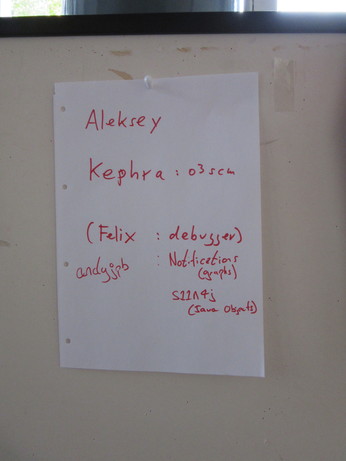 Aleksey
Kephra : o3scm
(Felix : debugger)
andyjpb : Notifications
(graphs)
s11n4j
(Java Objects)